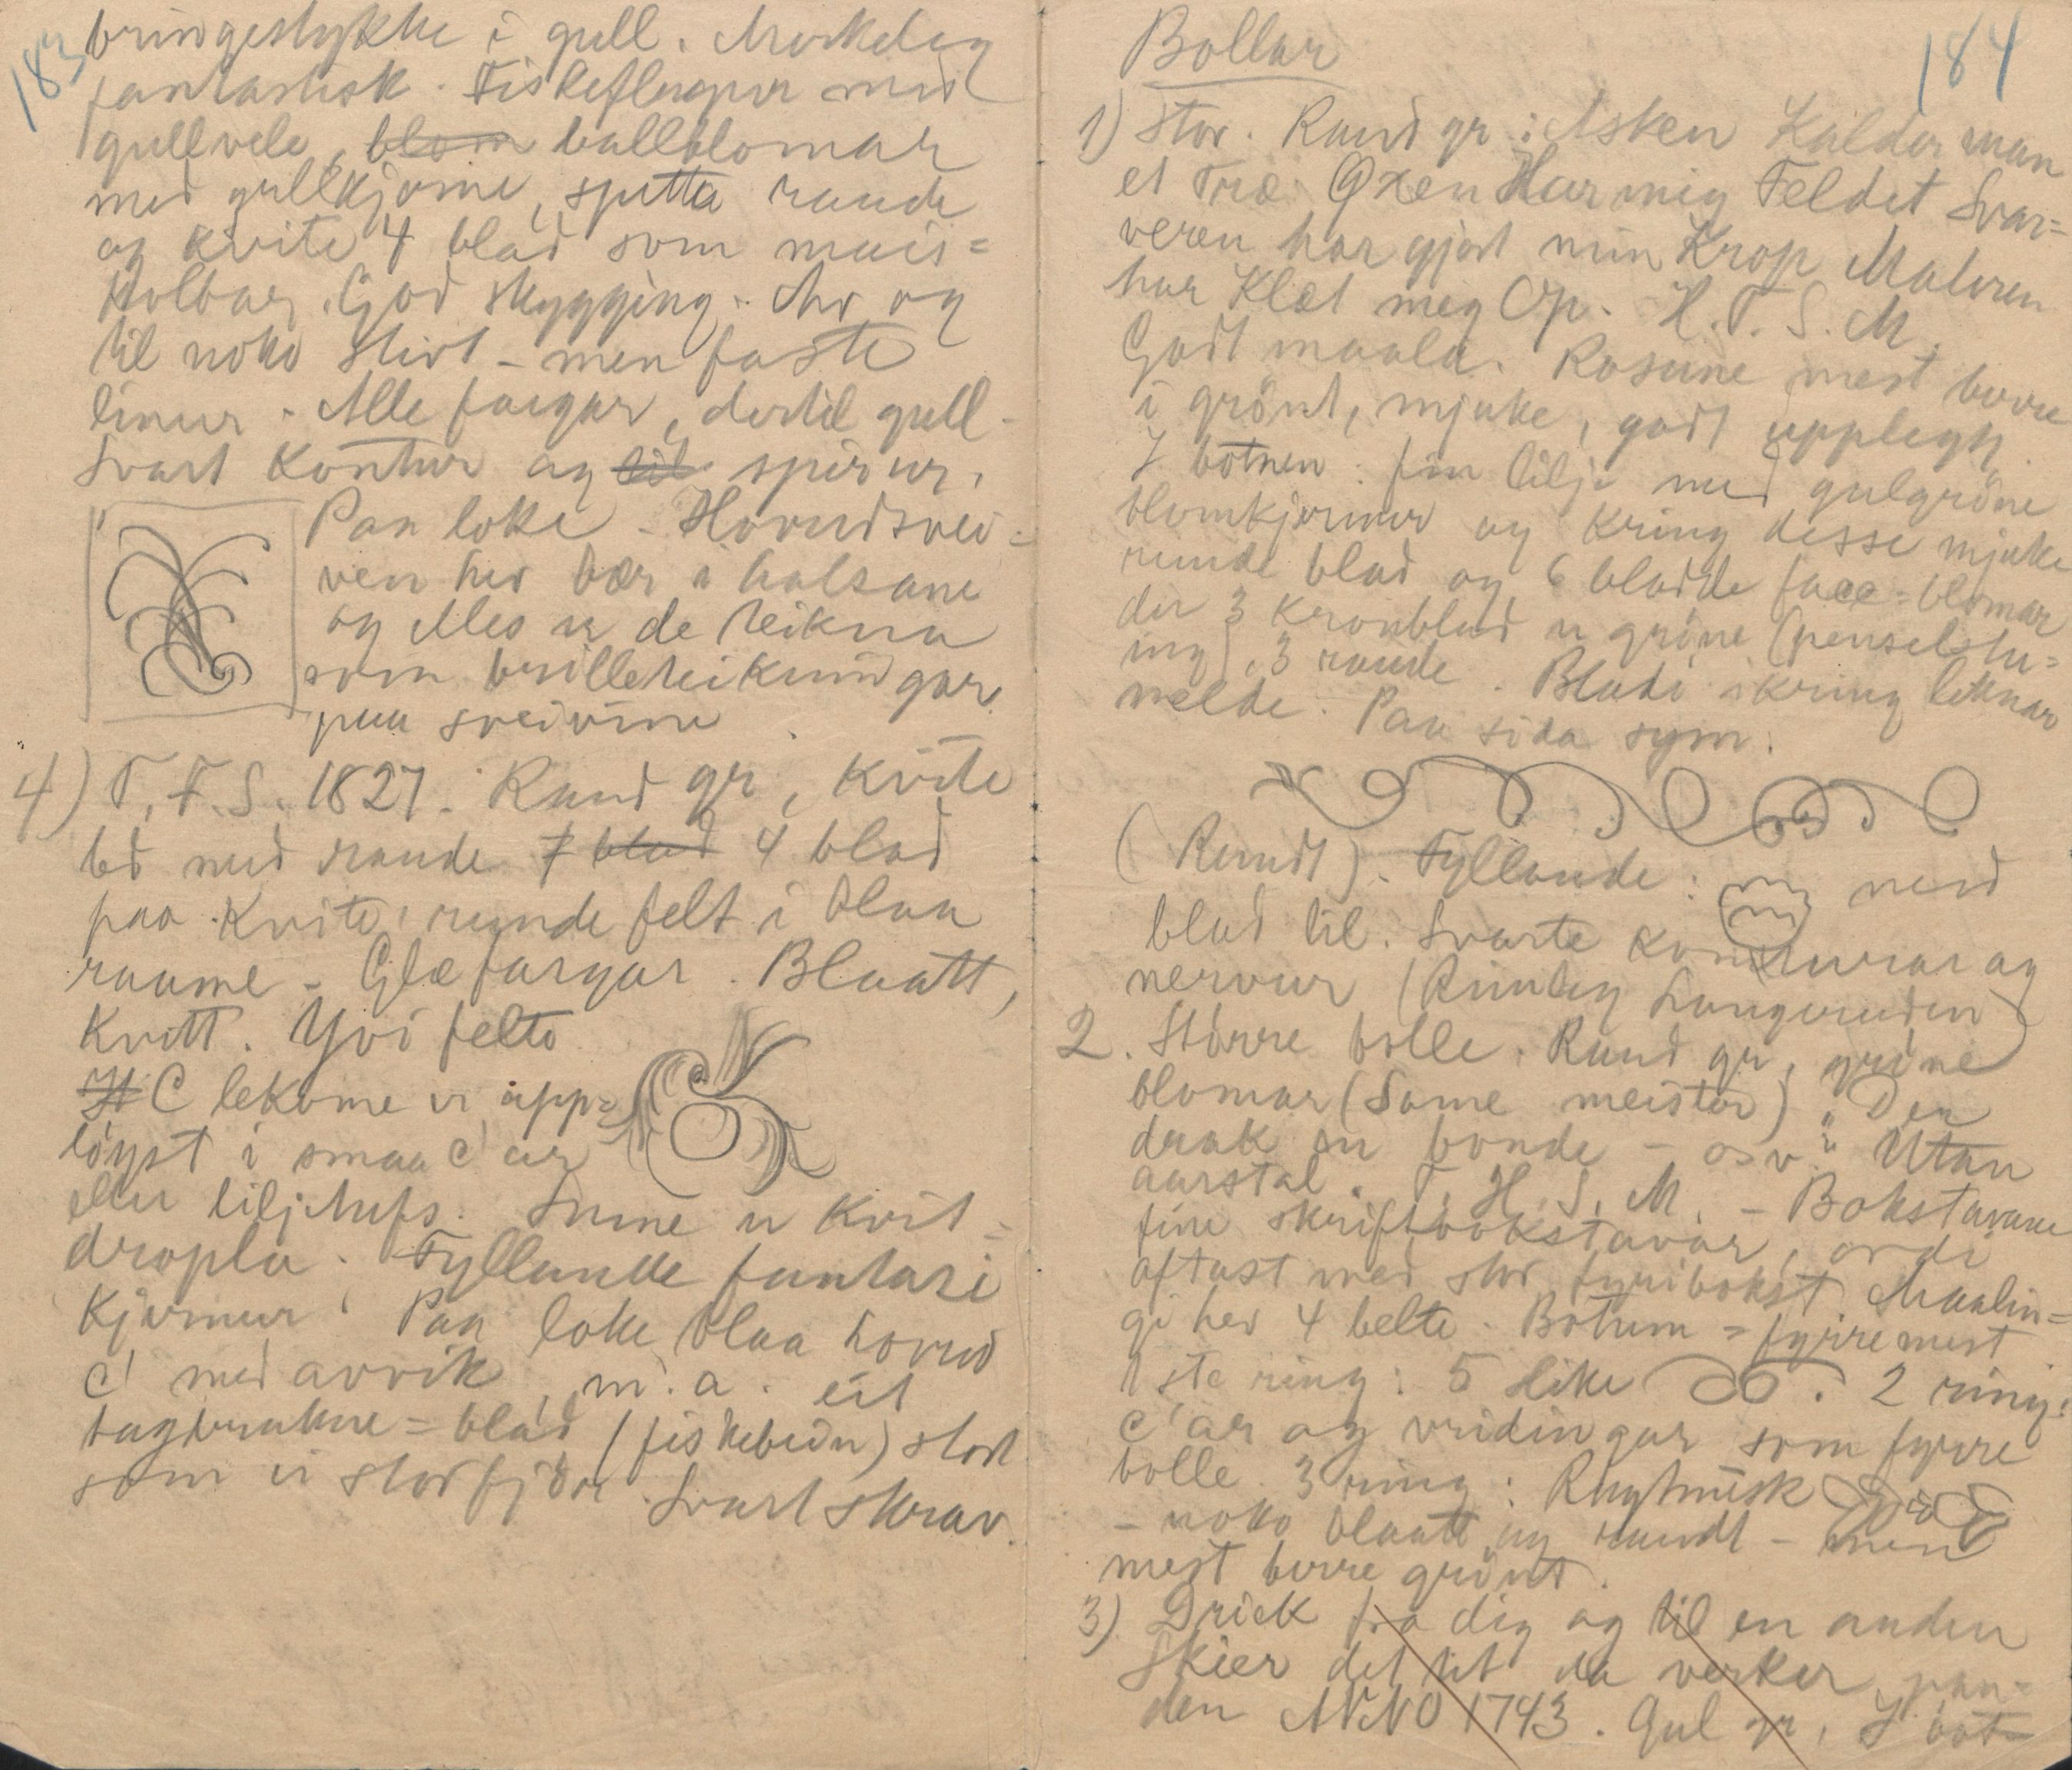 183
bringestykke i gull. Merkeleg
fantastisk. Fiskeflugur med
gullvele, blom ballblomar
med gullkjerne, spetta raude
og kvite 4 blad som mais=
kolbar. God skygging. Ar og
til noko stivt - men faste
linur. Alle fargar, dertil gull.
Svart kontur og til spirur.
Paa loke - Hovudsvei=
ven her bær i halsane
og Alles er de teikna
som brilleteikningar
paa sveivine.
4) T. F. S. 1827. Raud gr, kvite
bd med raude 7 blad 4 blad
paa kvite, runde felt i blaa
raame. Glæ fargar. Blaatt,
kvitt. Yvi felte
H C lekome er upp=
löyst i smaa c'ar
eller liljetufs. Sume er kvit=
dropla. Fyllande fantasi
kjernur. Paa loke blaa hovud
c' med avvik, m. a. eit
tagbrukne = blad (fiskebein) stort
som ei stor fjör. Svart skrav.
184
Bollar
1) Stor. Raud gr: Asken Kalder man
et Træ. Oxen Har mig Feldet Svar=
veren har gjort min Krop Maleren
har Klæt meg Op. H. T. S. M.
Godt maala. Rosune mest berre
i grönt, mjuke, godt upplegg
I botnen: fin lilje med gulgröne
blomkjernur og kring desse mjuke
runde blad og 6 bladde face=blomar
der 3 kronblad er gröne (penselstu=
ing), 3 raude. Bladi ikring liknar
melde. Paa sida sym:
(Rundt). Fyllande: med
blad til. Svarte konturar og
nervur (Rimeleg Langeruden)
2. Större bolle. Raud gr, gröne
blomar (Same meister) "Den
drak en bonde - osv" Utan
aarstal. T. H. S. M. - Bokstavane
fine skriftbokstavar, ordi
oftast med stor fyribokst. Maalin=
gi her 4 belte. Botnen = fyrremest
1ste ring: 5 slike . 2 ring:
c'ar og vridingar som fyrre
bolle. 3 ring: Rhytmisk
- noko blaatt og raudt - men
mest berre grönt.
3) Drick fra dig og til en anden
Skier det tit da verker pan=
den ANNO 1743. Gul gr, I bot=